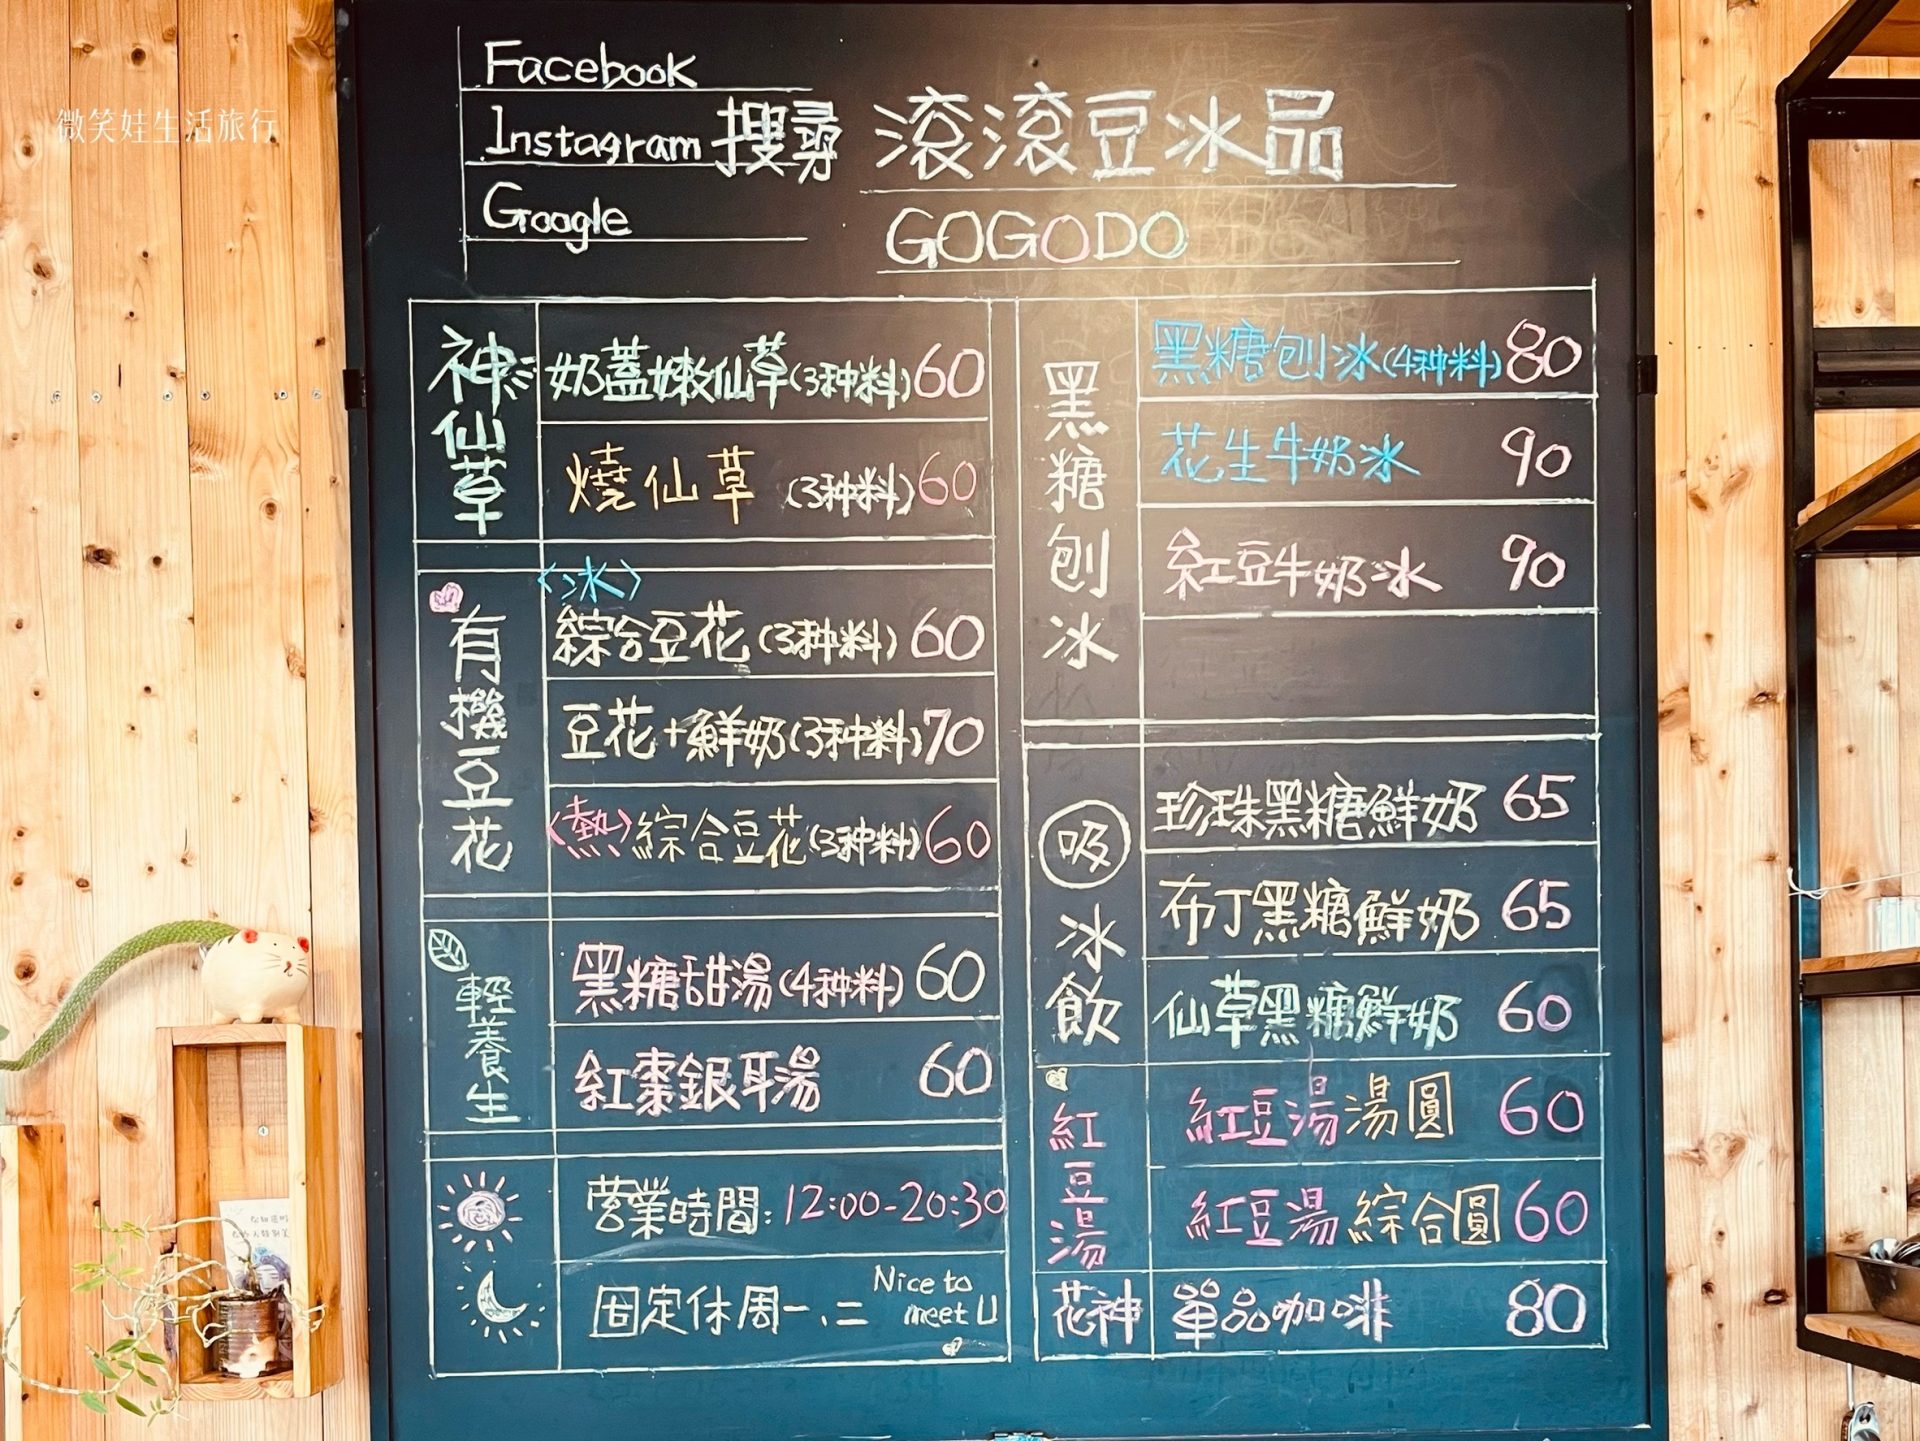 微笑娃生活旅行
Facebook
Instagram 搜尋 滾滾豆冰品
Google
GOGODO
神仙草
奶蓋嫩仙草(3种料) 60
燒仙草 (3种料) 60
有機豆花
<冰>
綜合豆花(3种料) 60
豆花+鮮奶(3种料) 70
<熱>綜合豆花(3种料) 60
輕養生
黑糖甜湯(4种料) 60
紅棗銀耳湯 60
营業時間: 12:00-20:30
固定休周一、二 Nice to
meet U
黑糖刨冰
黑糖刨冰(4种料) 80
花生牛奶冰 90
紅豆牛奶冰 90
吸冰飲
珍珠黑糖鮮奶 65
布丁黑糖鮮奶 65
仙草黑糖鮮奶 60
紅豆湯
紅豆湯湯圓 60
紅豆湯綜合圓 60
花神 單品咖啡 80